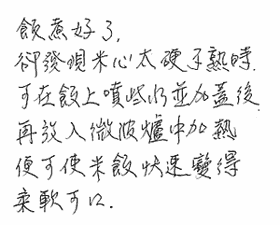 飯煮好了,
卻發現米心太硬不熟時,
可在飯上噴些水並加蓋後
再放入微波爐中加熱
便可使米飯快速變得
柔軟可口.